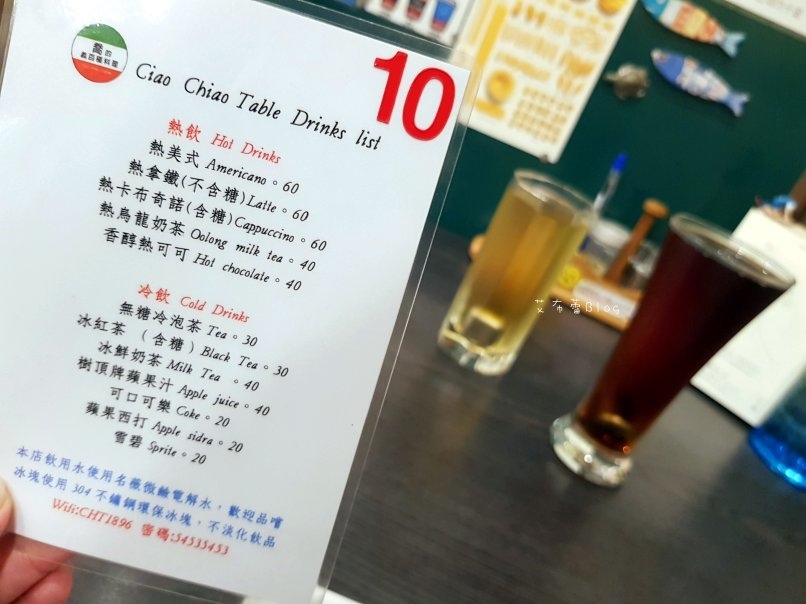 喬的
義百種料理
Ciao Chiao Table Drinks list
10
熱飲 Hot Drinks
熱美式 Americano。60
熱拿鐵(不含糖)Latte。60
熱卡布奇諾(含糖)Cappuccino。60
熱烏龍奶茶 Oolong milk tea。40
香醇熱可可 Hot chocolate。40
冷飲 Cold Drinks
無糖冷泡茶 Tea。30
冰紅茶 (含糖) Black Tea。30
冰鮮奶茶 Milk Tea 。40
樹頂牌蘋果汁 Apple juice。40
可口可樂 Coke。20
蘋果西打 Apple sidra。20
雪碧 Sprite。20
本店飲用水使用名薇微鹼電解水，歡迎品嚐
冰塊使用 304 不鏽鋼環保冰塊，不淡化飲品
Wifi:CHT1896 密碼:54535453
艾布蕾Blog